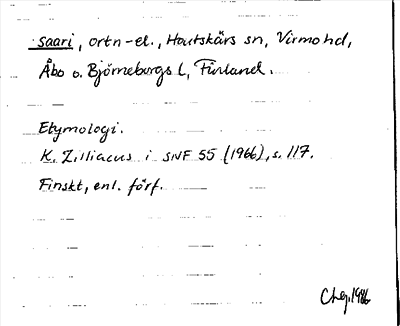 saari, ortn-el., Houtskärs sn, Virmo hd,
Åbo o. Björneborgs l, Finland.
Etymologi.
K. Zilliacus i SNF 55 (1966), s. 117.
Finskt, enl. förf.